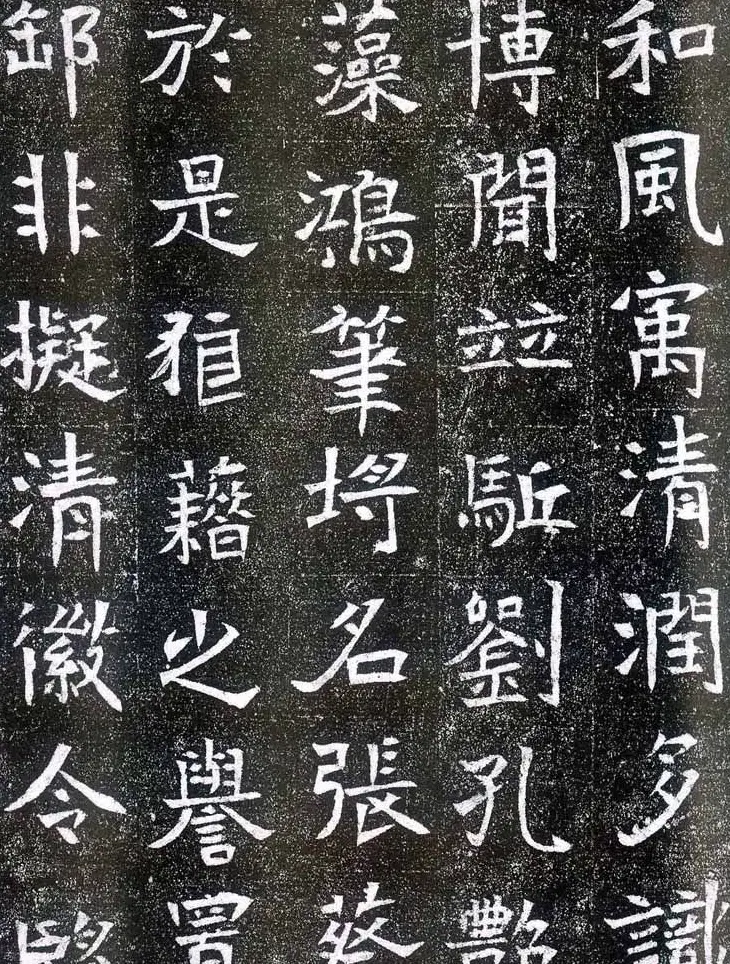 和風寓清潤多識
博聞竝駈劉孔艷
藻鴻筆埒名張蔡
於是藉之譽
非擬清徽令